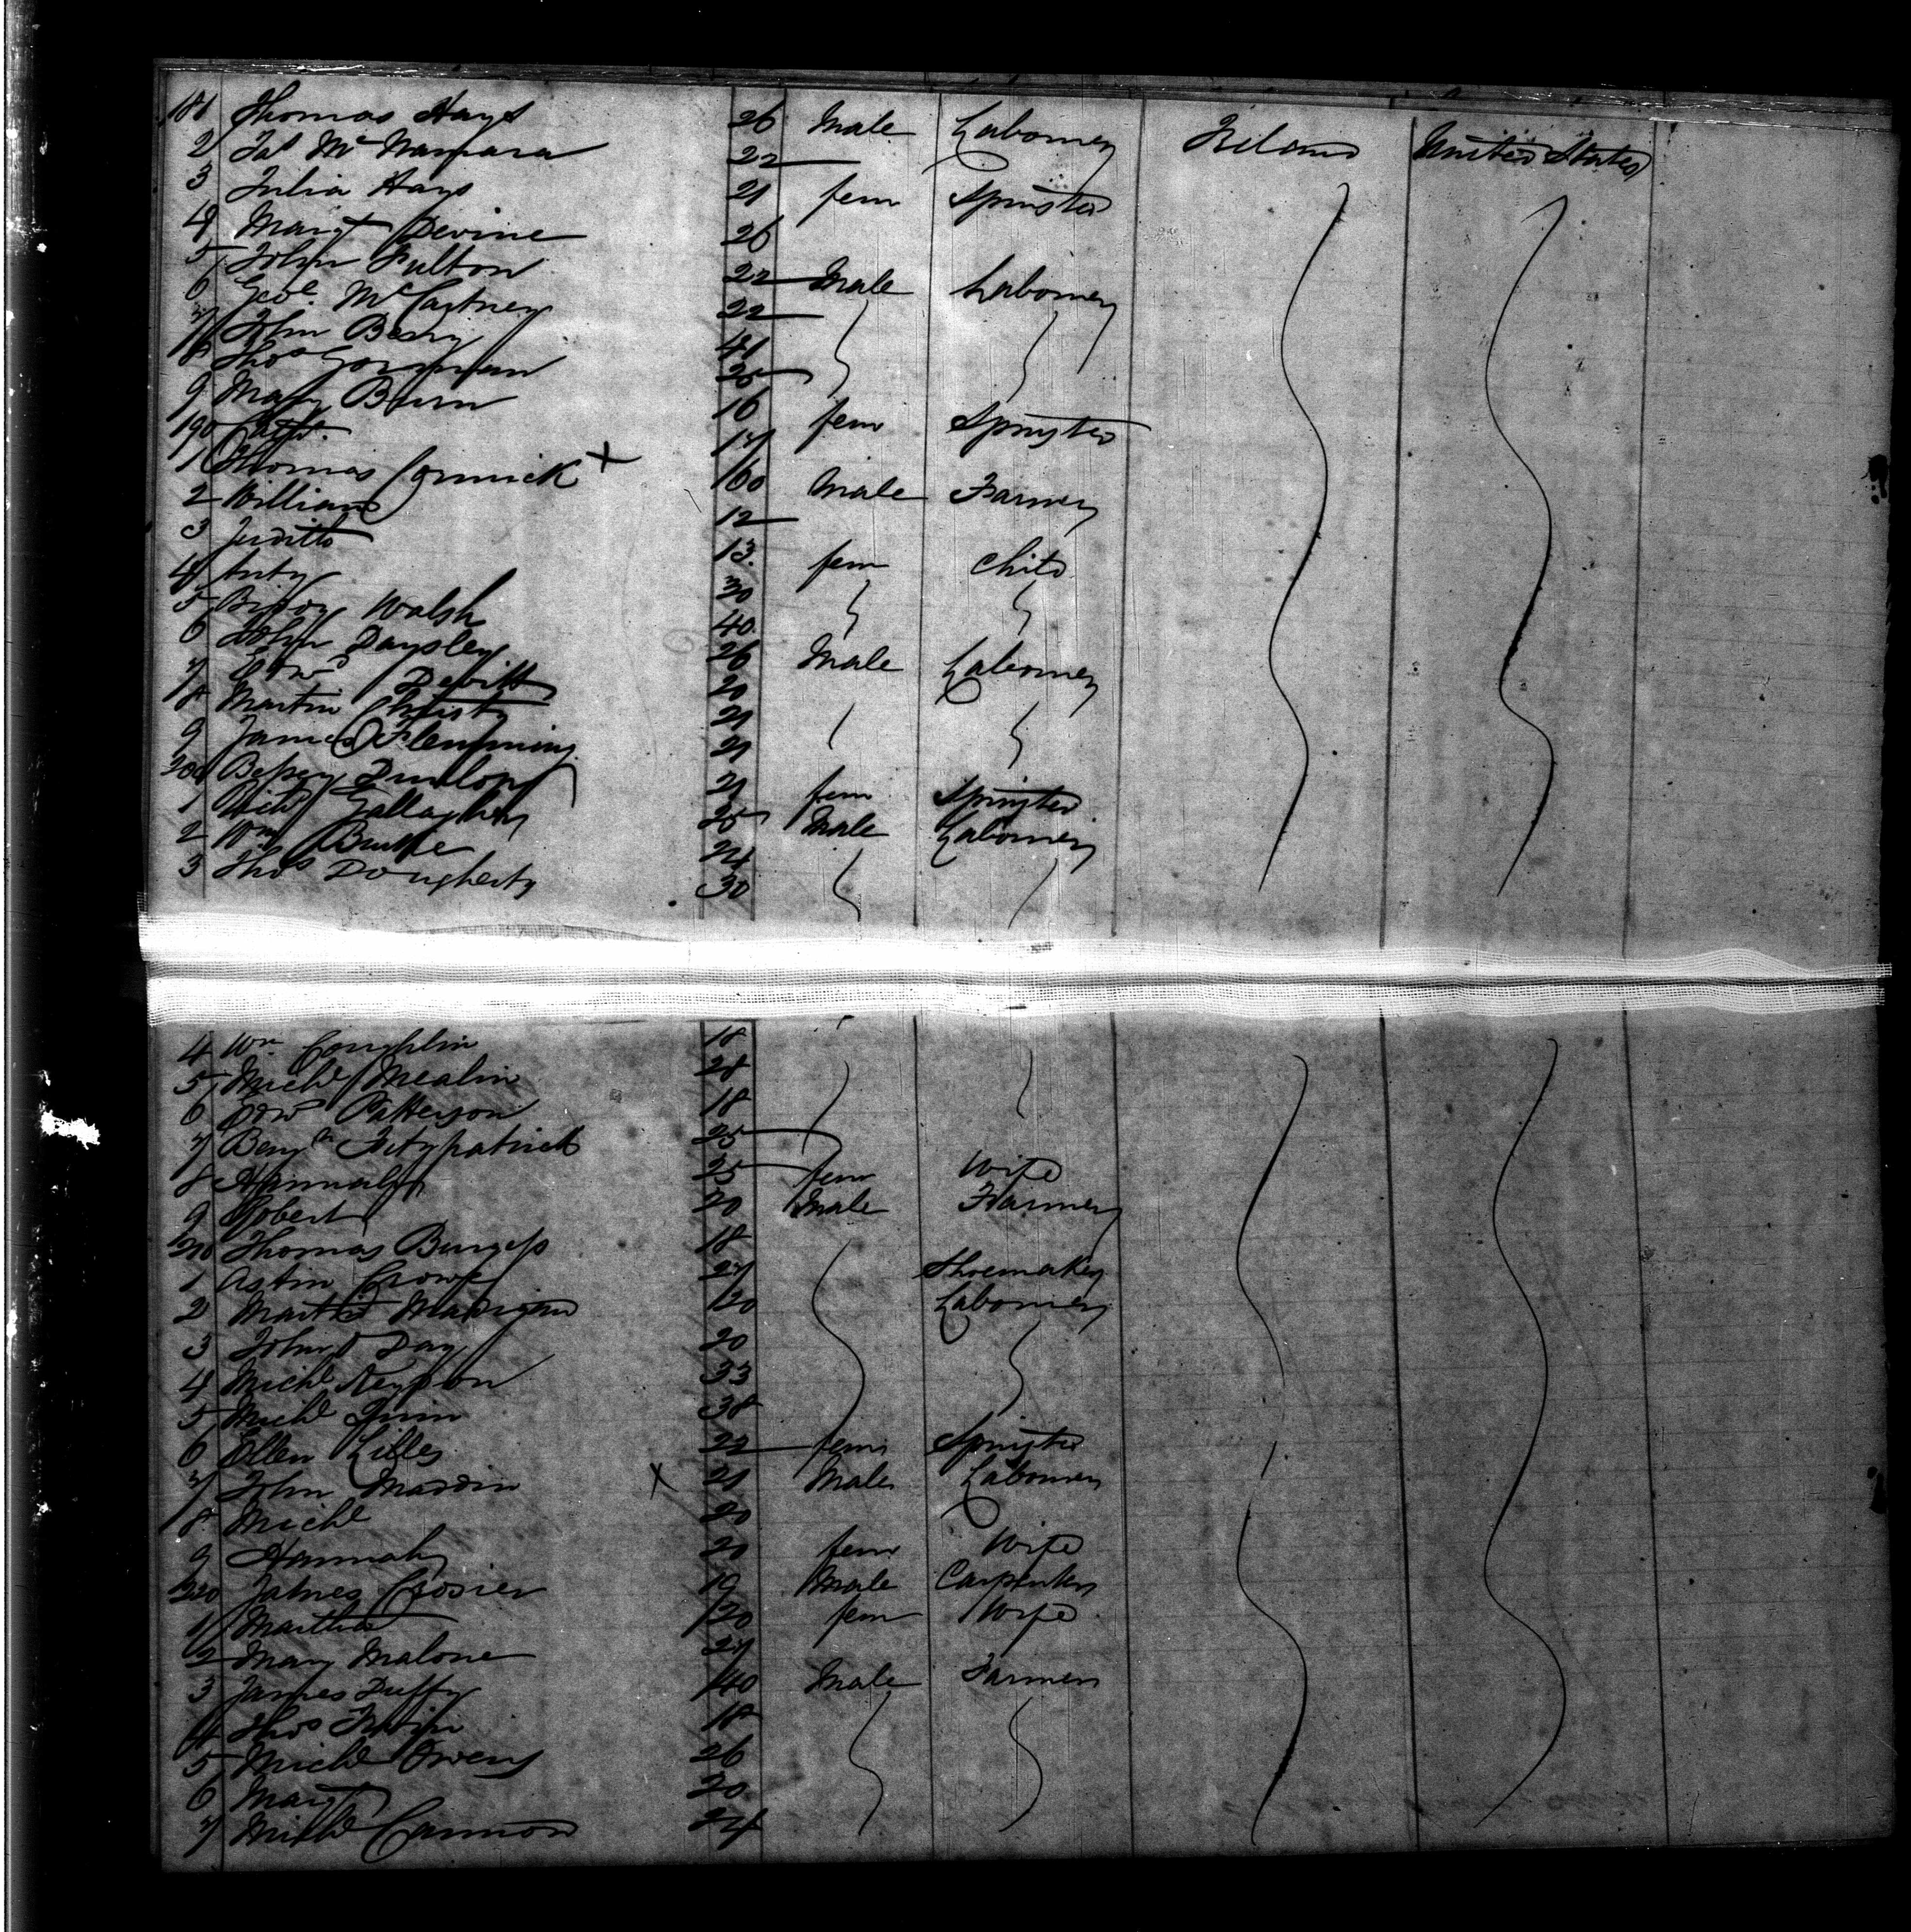 181 Thomas Hays 26 Male Labourer Ireland United States
2 Jas McNamara 22
3 Julia Hays 21 fem Spinster
4 Margt Devine 26
5 John Fulton 22 Male Labourer
6 Geoe. McCartney 22
7 John Berry 41
8 Thos Gorman 25
9 Mary Burn 16 fem Spinster
190 Cathe. 17
1 Thomas Cormick X 60 Male Farmer
2 William 12
3 Judith 13 fem Child
4 Anty 30
5 Biddy Walsh 40
6 John Daysley 26 Male Labourer
7 Edwd Devitt 20
8 Martin Christy 21
9 James Flemming 21
200 Betsey Dunlop 21 fem Spinster
1 Richd Gallagher 25 Male Labourer
2 Wm Burke 24
3 Thos Dougherty 30
4 Wm Coughlin 18
5 Michl Mealin 28
6 Edwd Patterson 18
7 Benjn Fitzpatrick 25
8 Hannah 25 fem Wife
9 Robert 20 Male Farmer
210 Thomas Burgess 18
1 Astin Crowe 27 Shoemaker
2 Martin Madigan 20 Labourer
3 John Day 20
4 Michl 33
5 Michl Quin 38
6 Ellen Lilles 22 fem Spinster
7 John Mardin X 21 Male Labourer
8 Michl 20
9 Hannah 20 fem Wife
220 James Crosier 19 Male Carpenter
1 Martha 20 fem Wife
2 Mary Malone 27
3 James Duffy 40 Male Farmer
4 Thos Irwin 18
5 Michl Owens 26
6 Margt 20
7 Michl Cannon 24